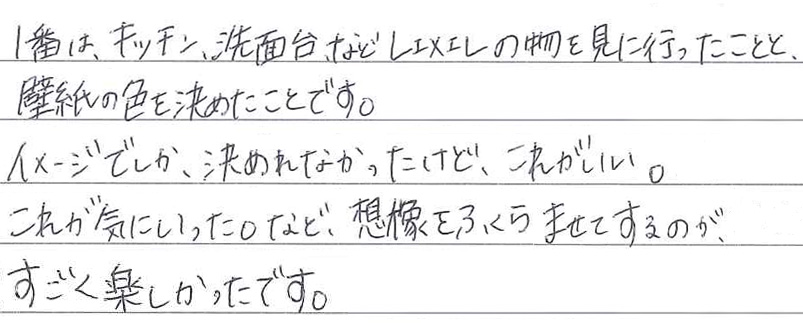 1番は、キッチン、洗面台、など LIXIL の物を見に行ったことと、
壁紙の色を決めたことです。
イメージでしか、決めれなかったけど、これがいい。
これが気にいった。など、想像をふくらませてするのが、
すごく楽しかったです。